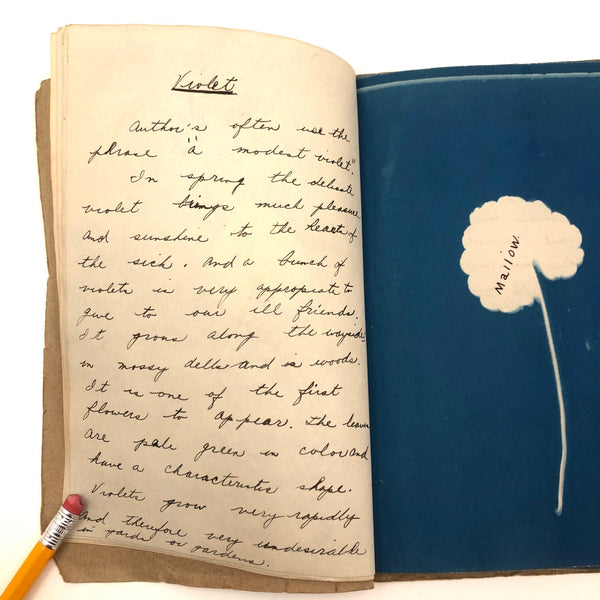 Violet
Author's often use the
phrase "a modest violet."
In spring the delicate
violet brings much pleasure
and sunshine to the hearts of
the sick. And a bunch of
violets is very appropiate to
give to our ill friends.
It grows along the wayside
in mossy dells and in woods.
It is one of the first
flowers to appear. The leaves
are pale green in color and
have a characteristic shape.
Violets grow very rapidly
and therefore very undesirable
in yards or gardens.
Mallow